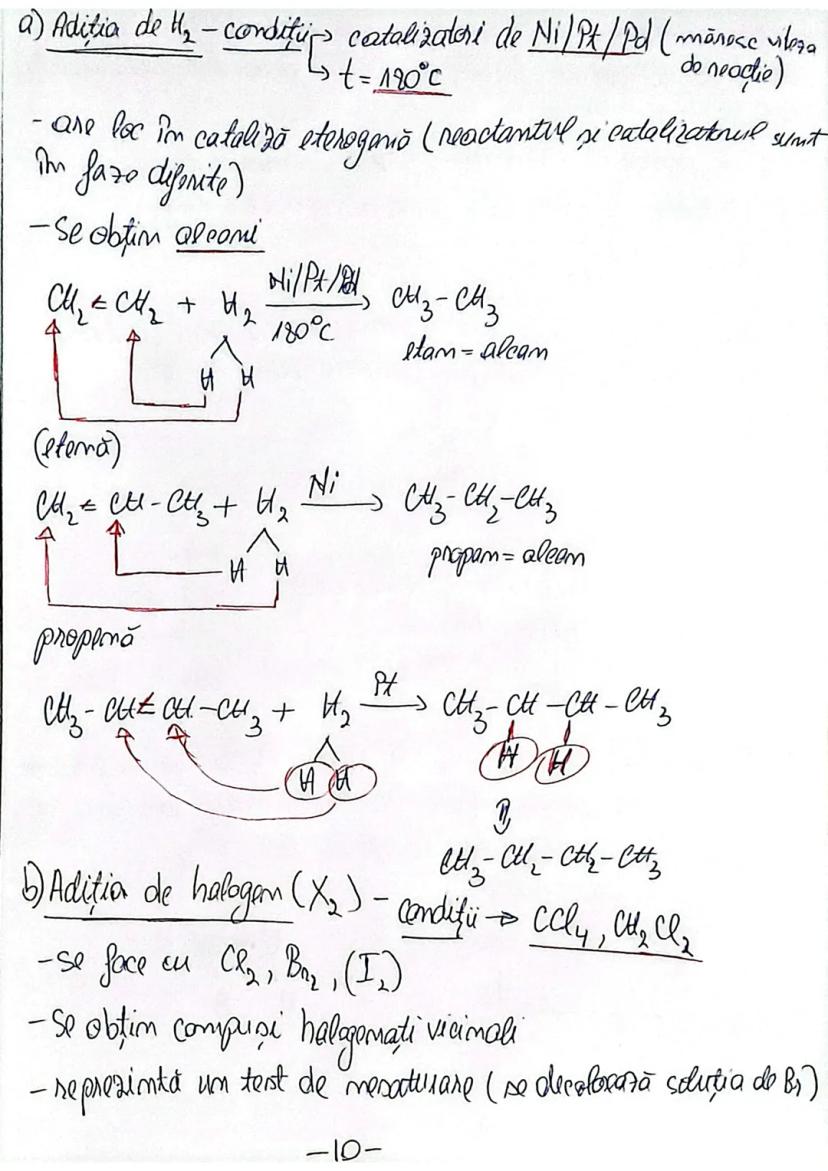 a) Adiția de H₂ – condiții → catalizatori de Ni/Pt/Pd (măresc viteza de reacție)
↳ t = 180°C
- are loc în cataliză eterogenă (reactantul și catalizatorul sunt
în faze diferite)
- Se obțin alcani
CH₂ = CH₂ + H₂ Ni/Pt/Pd 180°C → CH₃ – CH₃
etan = alcan
H H
(etenă)
CH₂ = CH – CH₃ + H₂ Ni → CH₃ – CH₂ – CH₃
H H propan = alcan
propenă
CH₃ – CH = CH – CH₃ + H₂ Pt → CH₃ – CH – CH – CH₃
H H H H
⇓
CH₃ – CH₂ – CH₂ – CH₃
b) Adiția de halogen (X₂) – condiții → CCl₄, CH₂Cl₂
- se face cu Cl₂, Br₂, (I₂)
- Se obțin compuși halogenați vicinali
- reprezintă un test de nesaturare (se decolorează soluția de Br₂)
–10–